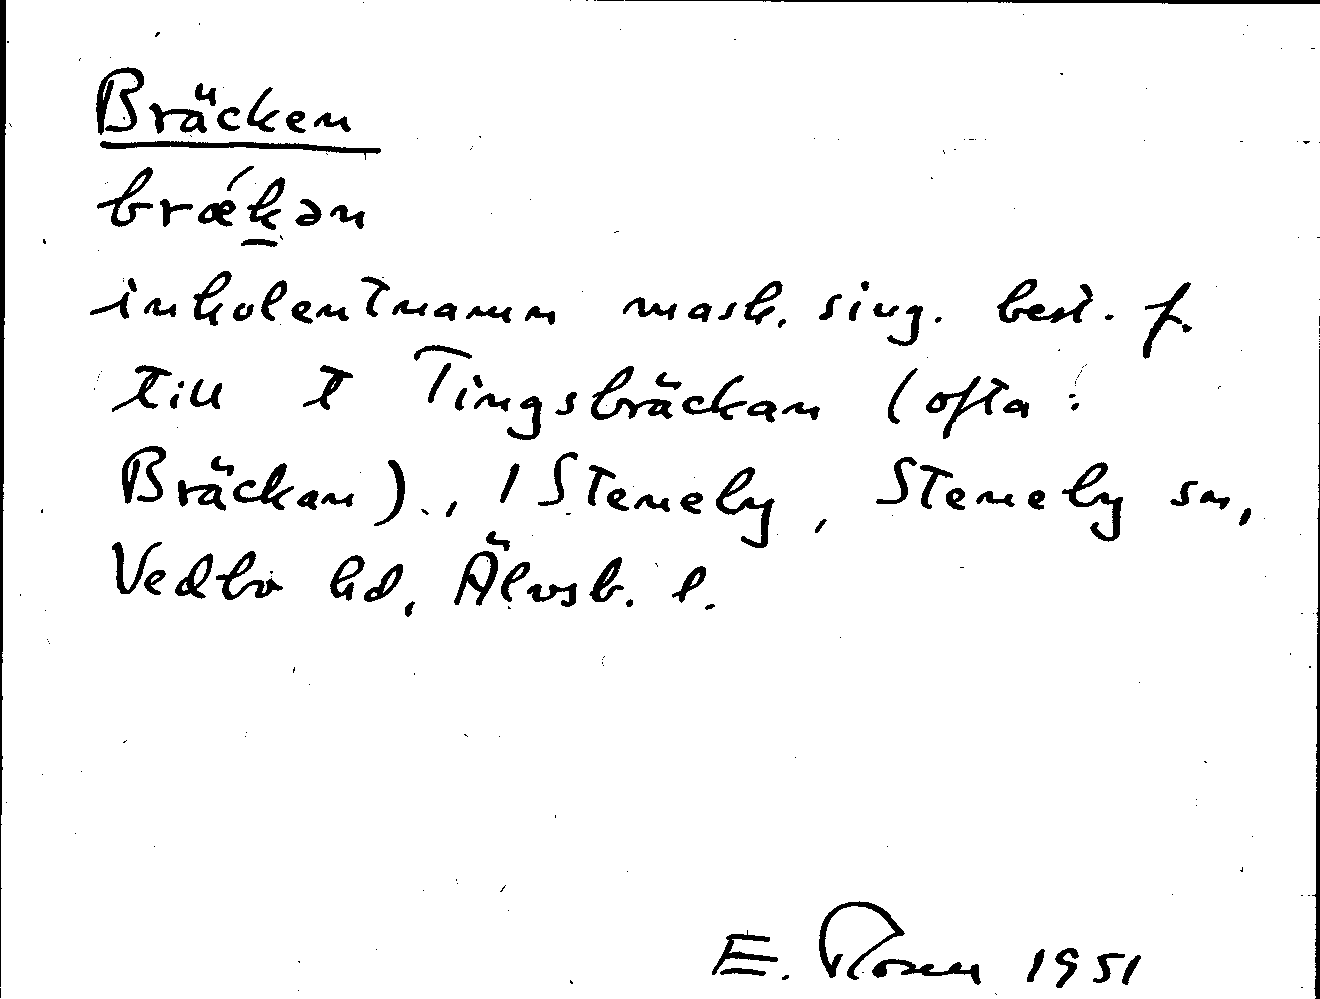 Bräcken
brǽk̲ən
inkolentnamn mask. sing. best. f.
till t Tingsbräckan (ofta:
Bräckan)., 1 Steneby, Steneby sn,
Vedbo hd, Älvsb. l.
E. Rosen 1951